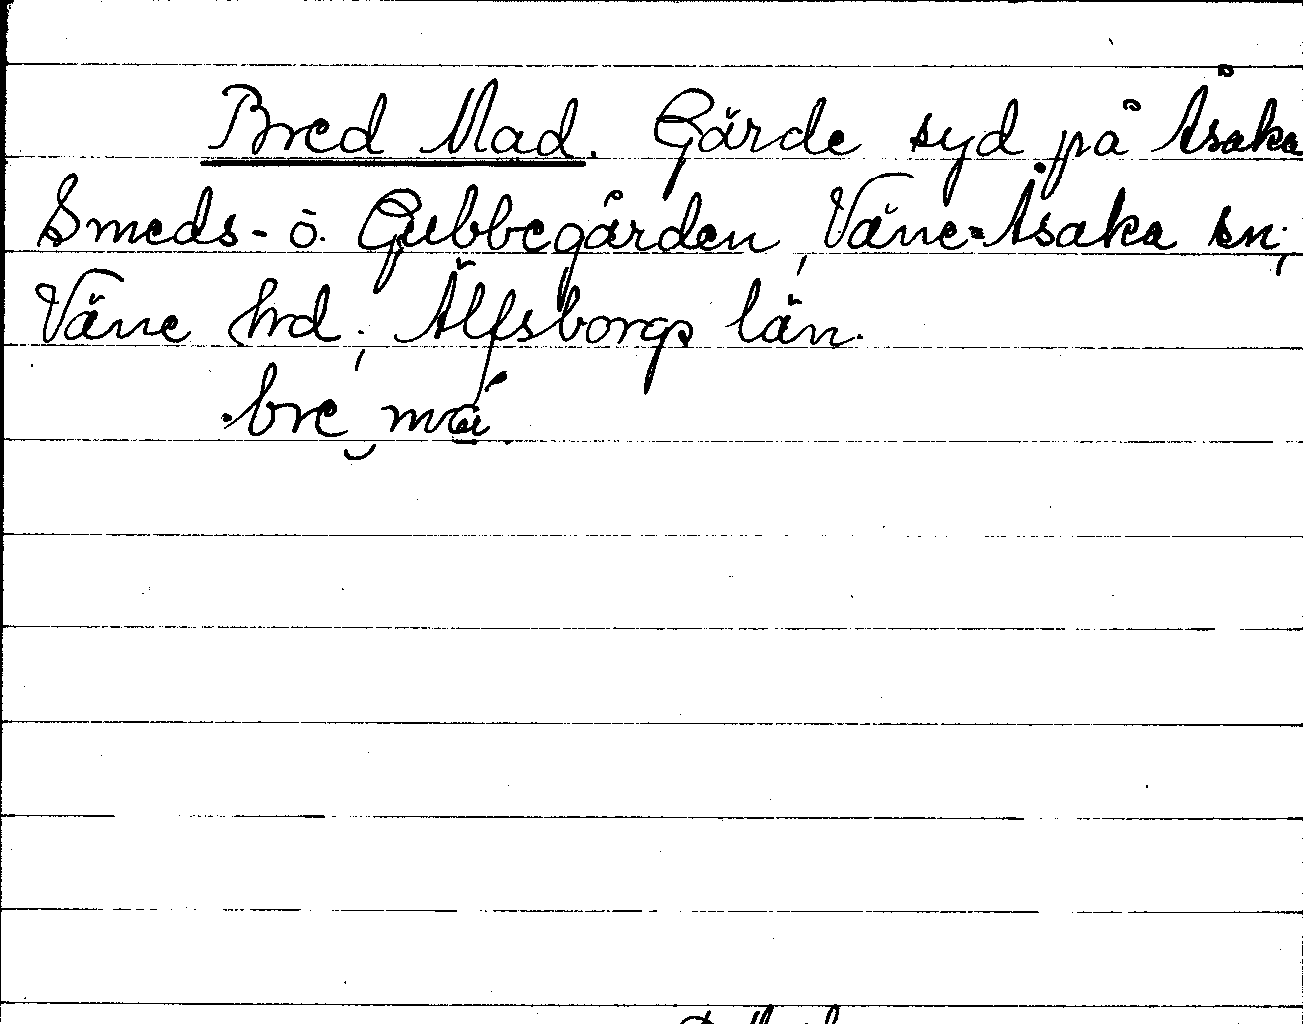 Bred Mad. Gärde syd på Åsaka
Smeds- o. Gubbegården, Väne-Åsaka sn;
Väne hrd; Älfsborgs län.
bre‿má